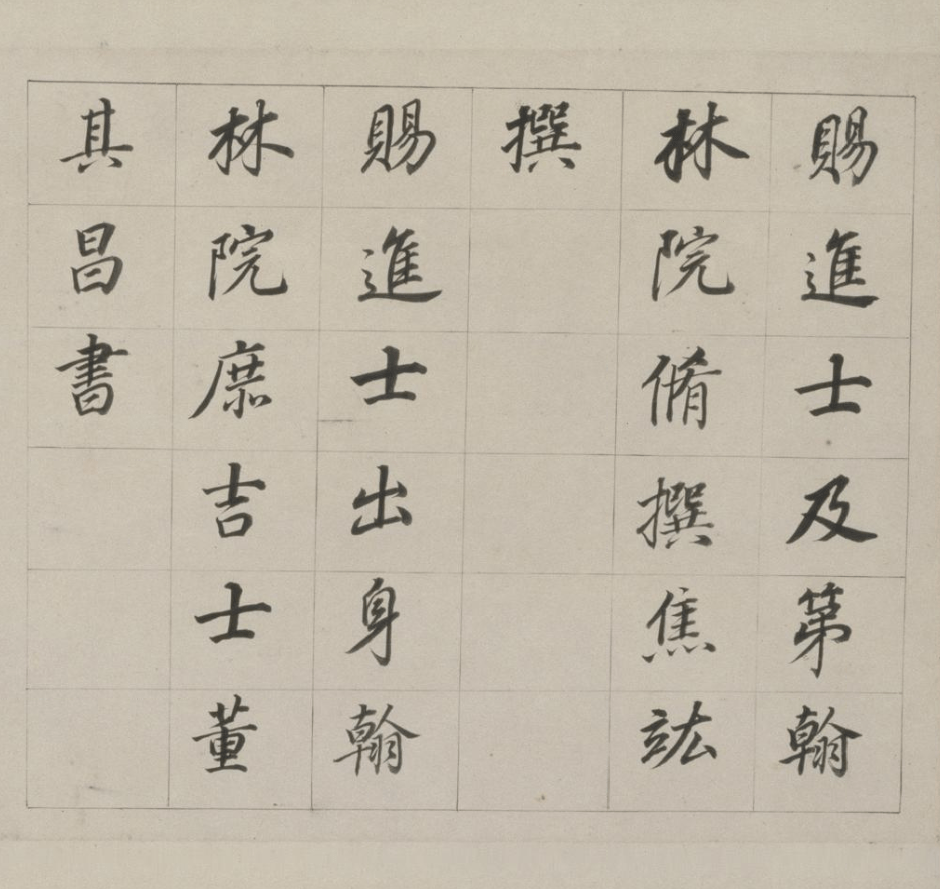 賜進士及第翰
林院脩撰焦竑
撰
賜進士出身翰
林院庶吉士董
其昌書